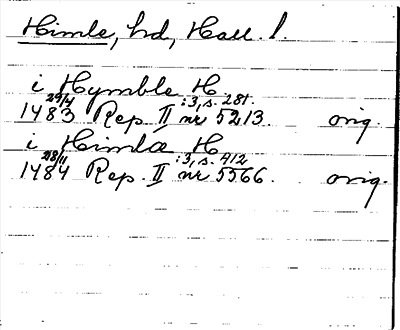 Himle, hd, Hall. l.
i Hymble H
29/4 :3, s. 281.
1483 Rep. II nr 5213. orig.
i Himlæ H
28/11 :3, s. 412
1484 Rep. II nr 5566. orig.